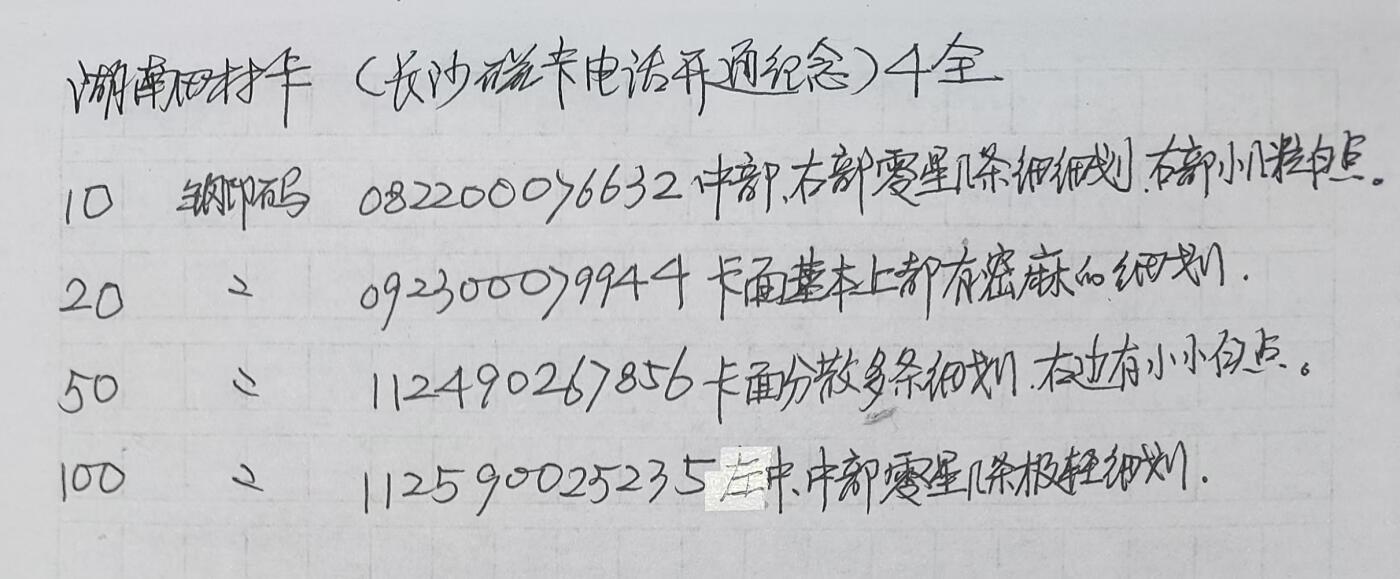 湖南田村卡（长沙磁卡电话开通纪念）4全
10 钢印码 082200076632 中部、右部零星几条细细划、右部小几粒白点。
20 〃 092300079944 卡面基本上都有密麻的细划.
50 〃 112490267856 卡面分散多条细划、右边有小小白点。
100 〃 112590025235 左中、中部零星几条极轻细划.